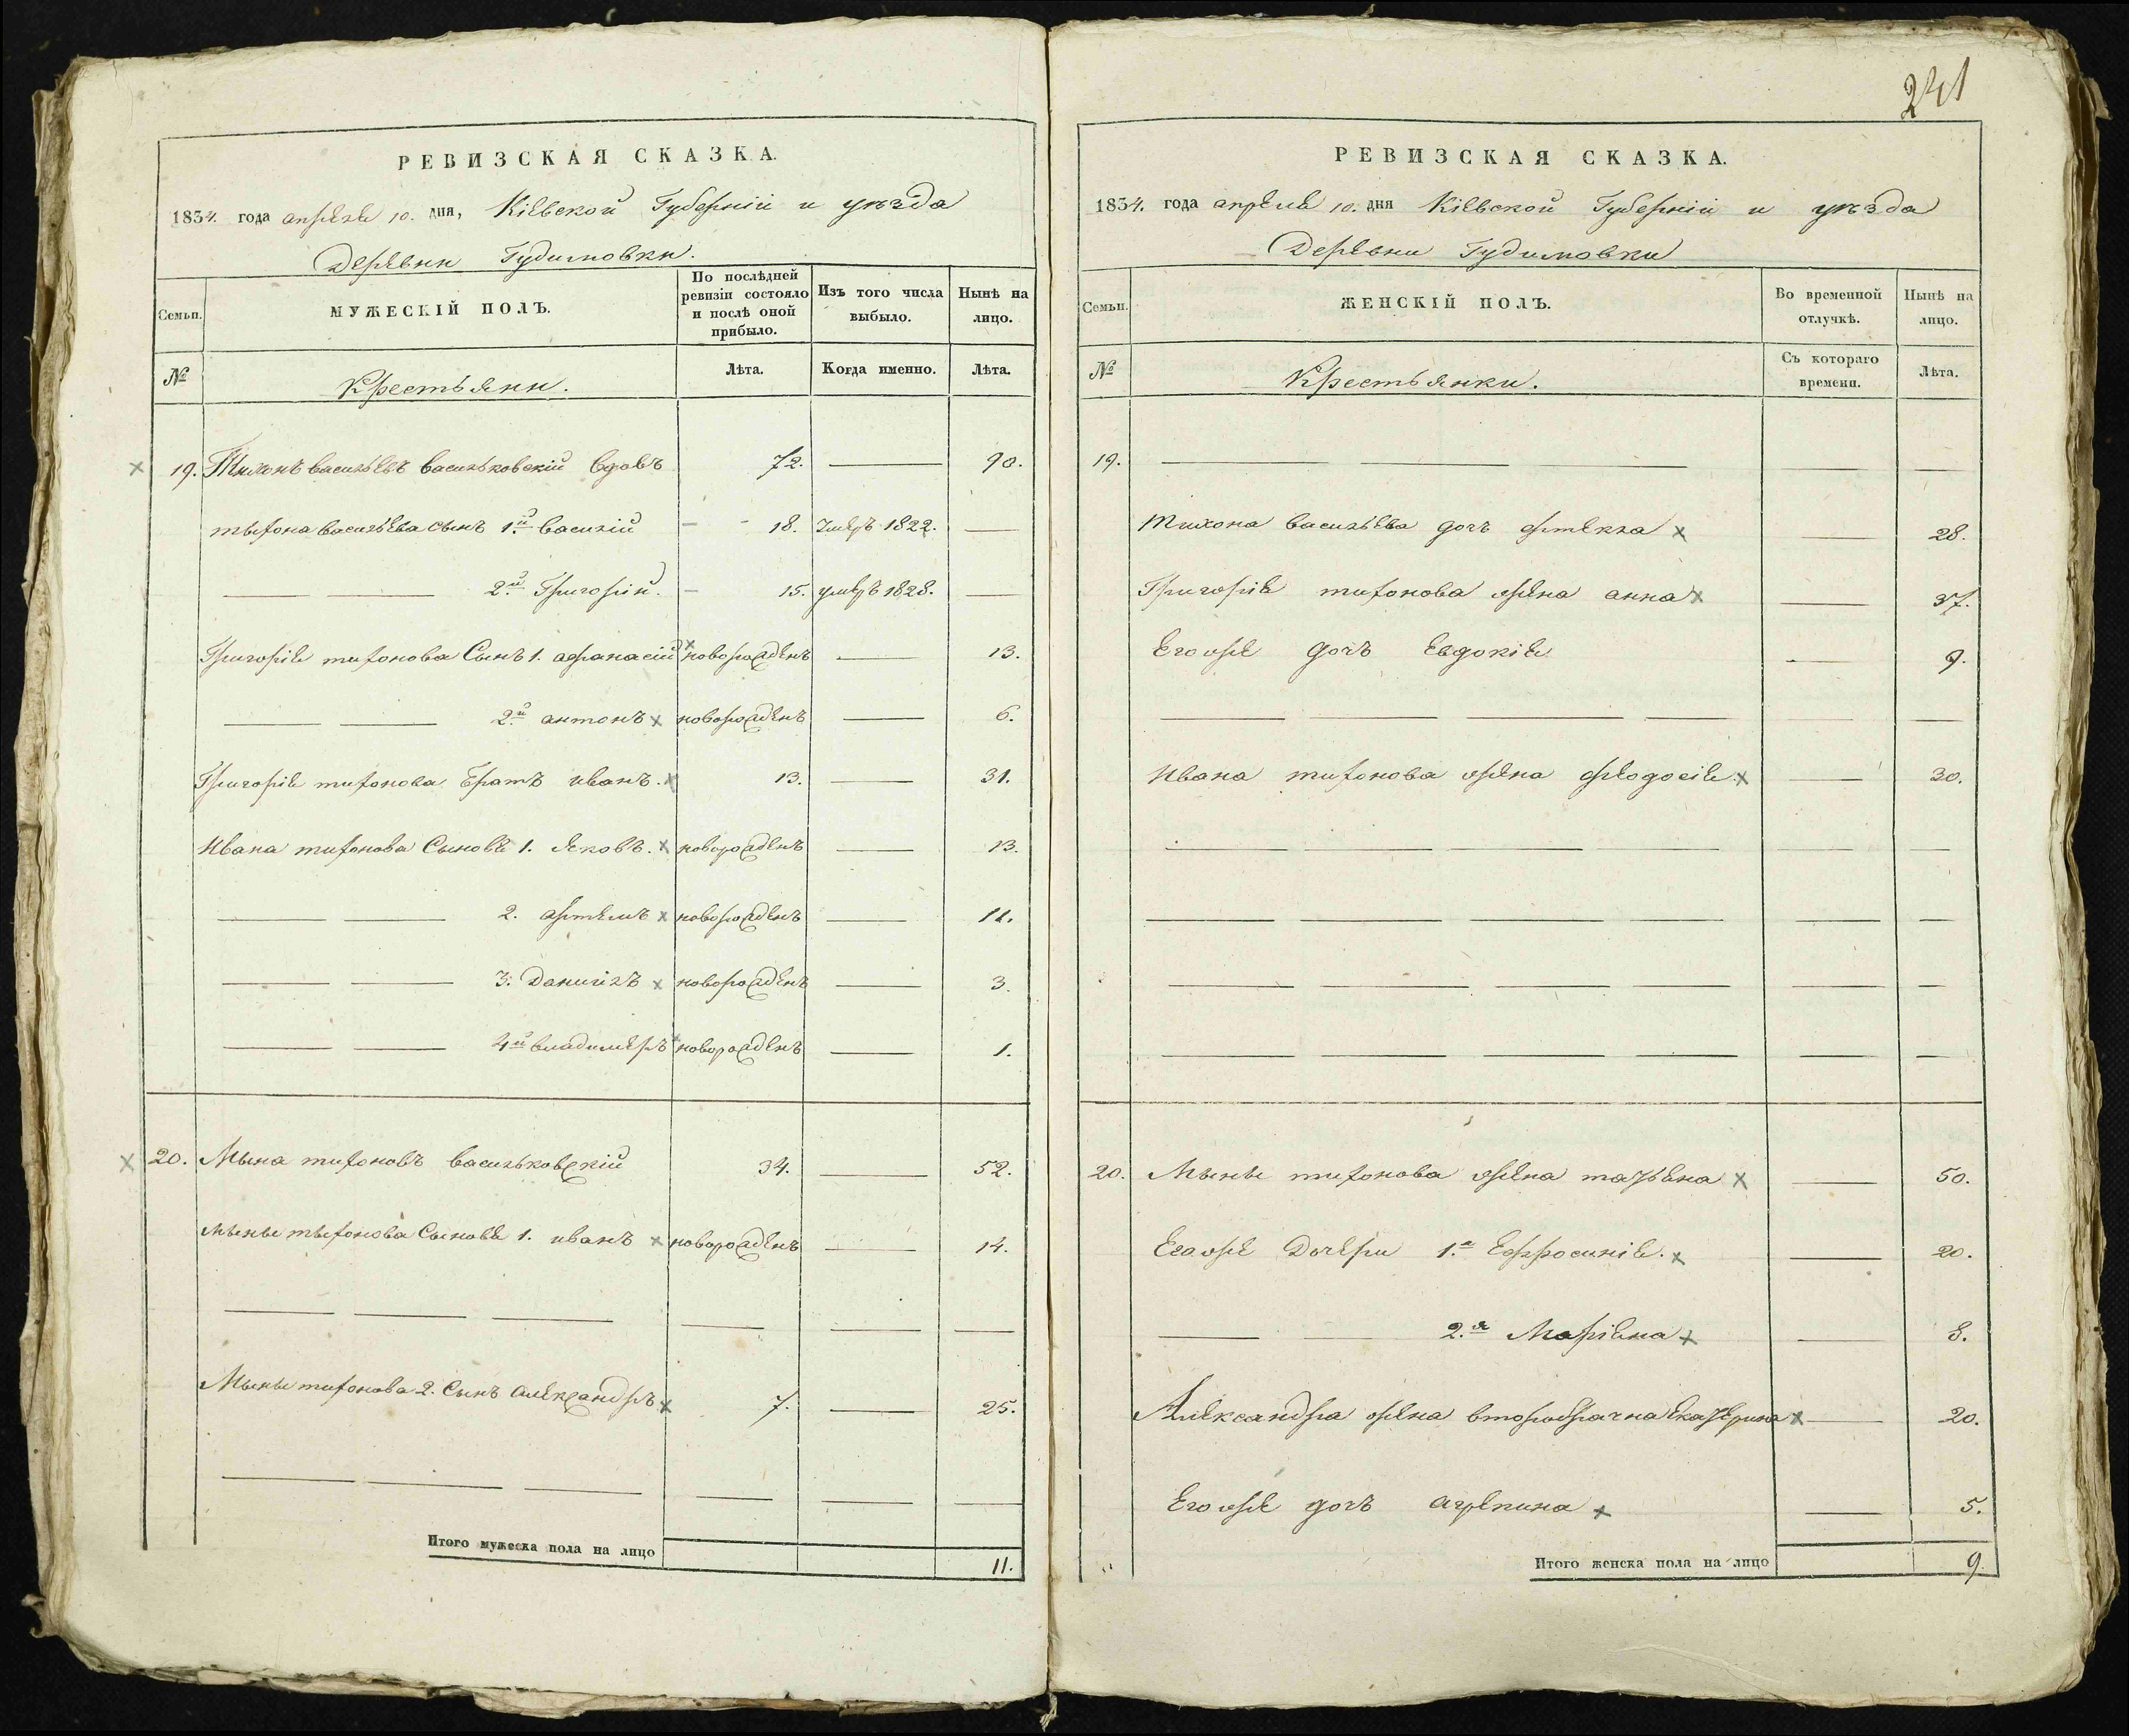 РЕВИЗСКАЯ СКАЗКА.
1834. года апреля 10. дня, Кіевской Губерніи и уѣзда
Деревни Гудимовки.
Семьи.
МУЖЕСКІЙ ПОЛЪ.
По послѣдней ревизіи состояло и послѣ оной прибыло.
Изъ того числа выбыло.
Нынѣ на лицо.
№
Крестьяни.
Лѣта.
Когда именно.
Лѣта.
19. Тихонъ васильевъ васильковскій вдовъ 72. 90.
тыхона васильева сынъ 1й василій 18. умеръ 1822.
2й Григорій. 15. умеръ 1828.
Григорія тихонова Сынъ 1. афанасій новорожденъ 13.
2й антонъ новорожденъ 6.
Григорія тихонова братъ иванъ. 13. 31.
Ивана тихонова Сыновья 1. яковъ. новорожденъ 13.
2. артемъ новорожденъ 11.
3. Даниілъ новорожденъ 3.
4й владимеръ новорожденъ 1.
20. Мына тихоновъ васильковскій 34. 52.
мыны тыхонова Сыновья 1. иванъ новорожденъ 14.
Мыны тихонова 2. Сынъ александръ 7. 25.
Итого мужеска пола на лицо 11.
241
РЕВИЗСКАЯ СКАЗКА.
1834. года апреля 10. дня Кіевской Губерніи и уѣзда
Деревни Гудимовки
Семьи.
ЖЕНСКІЙ ПОЛЪ.
Во временной отлучкѣ.
Нынѣ на лицо.
№
Крестьянки.
Съ котораго времени.
Лѣта.
19.
Тихона васильева дочь 28.
Григорія тихонова жена анна 37.
Его же дочь Евдокія 9.
Ивана тихонова жена феодосія 30.
20. Мыны тихонова жена татьяна 50.
Его же Дочери 1.я Ефросинія. 20.
2.я Маріяна 8.
Александра жена второбрачна екатерина 20.
Его же дочь агрепина 5.
Итого женска пола на лицо 9.